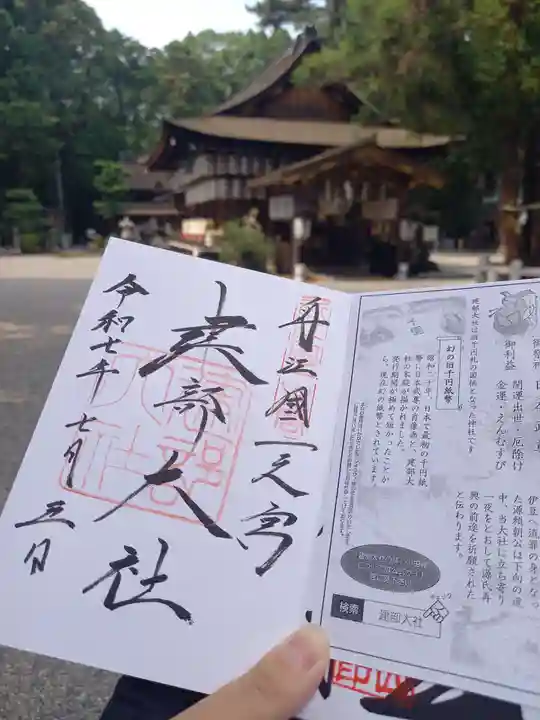 近江國一之宮
建部大社
令和七年七月三日
御利益
開運出世・厄除け
金運・えんむすび
建部大社は旧千円札の図柄となった神社です
幻の旧千円紙幣
昭和二十年、日本で最初の千円紙
幣に日本武尊の肖像画と、建部大
社の本殿が描かれました。
発行期間が極めて短かったことか
ら、現在幻の紙幣とされています。
伊豆へ流罪の身となっ
た源頼朝公は下向の途
中、当大社に立ち寄り
一夜をとおして源氏再
興の前途を祈願された
と伝わります。
検索
建部大社